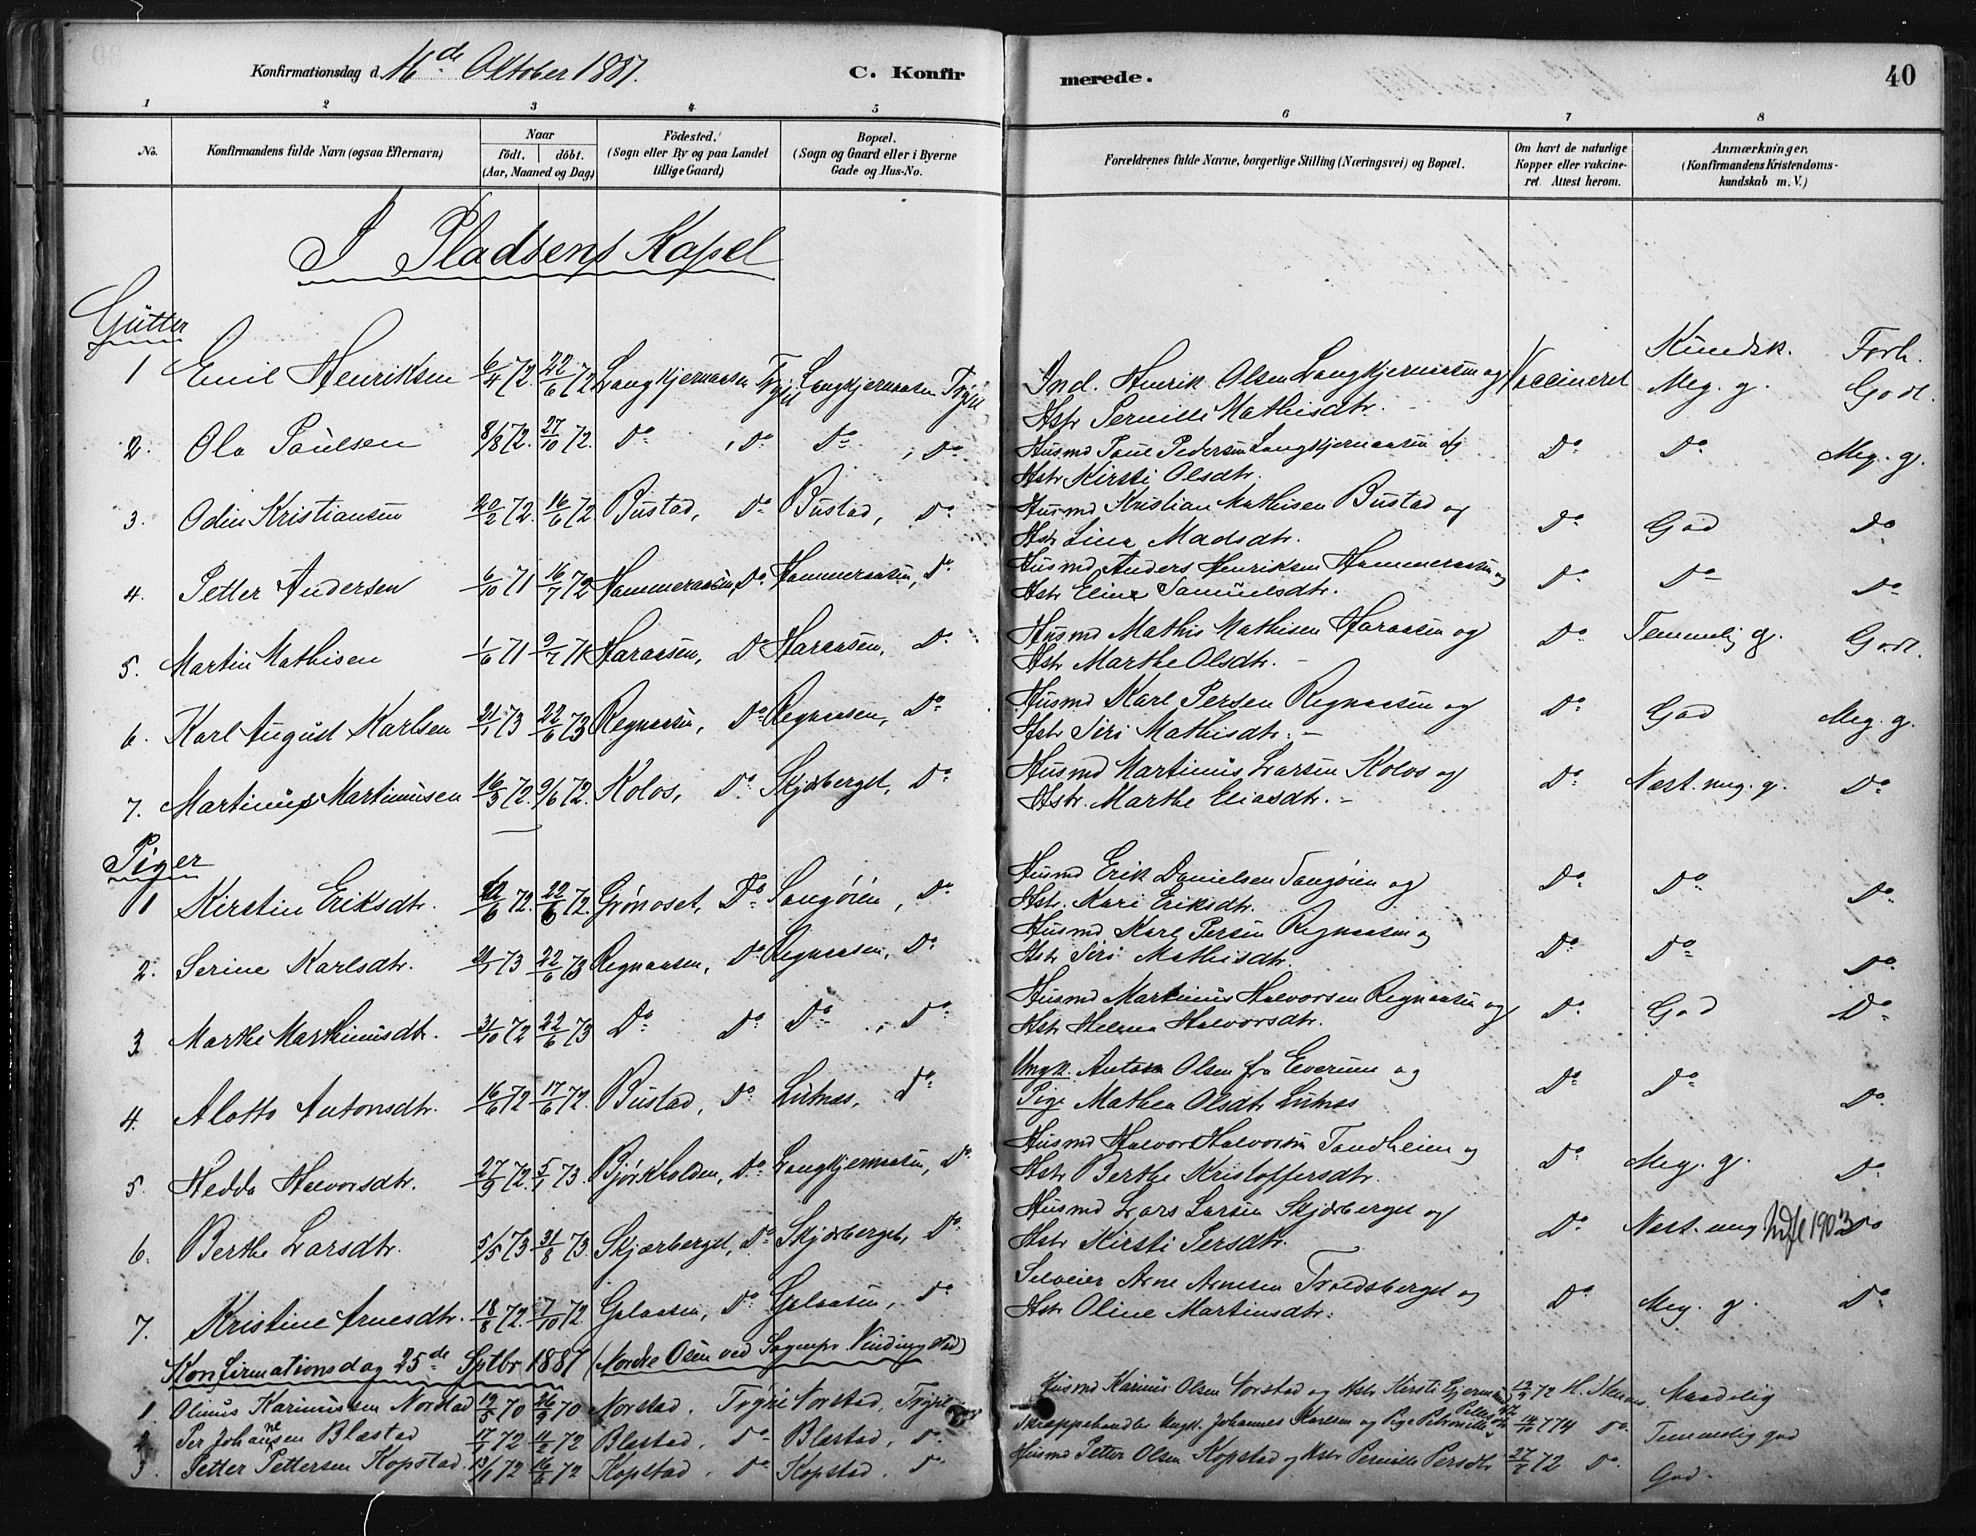 Konfirmationsdag d. 16de Oktober 1887. C. Konfirmerede. 40
1 2 3 4 5 6 7 8
No. Konfirmandens fulde Navn (ogsaa Efternavn) Naar født. døbt. (Aar, Maaned og Dag) Fødested. (Sogn eller By og paa Landet tillige Gaard) Bopæl. (Sogn og Gaard eller i Byerne Gade og Hus-No. Forældrenes fulde Navne, borgerlige Stilling (Næringsvei) og Bopæl. Om havt de naturlige Kopper eller vakcineret. Attest herom. Anmærkninger, (Konfirmandens Kristendomskundskab m. V.)
I Pladsens Kapel
Gutter
Kundsk. Forh.
1 Emil Henriksen 6/4 72. 22/6 72 Langkjernaasen Trysil Langkjernaasen Trysil Ind. Henrik Olsen Langkjernaasen og Vaccineret Meg. g. Godt.
Hstr Pernille Mathisdtr.
2. Ola Paulsen 8/8 72. 27/10 72. Do , Do Do , Do Husmd Paul Pedersen Langkjernaasen og Do Do Meg. g.
Hstr Kirsti Olsdtr.
3. Odin Kristiansen 20/2 72. 16/6 72 Bustad, Do Bustad, Do Husmd Kristian Mathisen Bustad og Do God Do
Hstr Lina Madsdtr.
4. Petter Andersen 6/10 71 16/7 72 Hammeraasen, Do Hammeraasen, Do Husmd Anders Henriksen Hammeraasen og Do Do Do
Hstr Eline Samuelsdtr.
5. Martin Mathisen 1/6 71 9/7 71 Haraasen, Do Haraasen, Do Husmd Mathis Mathisen Haraasen og Do Temmelig g. Godt.
Hstr Marthe Olsdtr. –
6. Karl August Karlsen 21/1 73 22/6 73 Regnaasen, Do Regnaasen, Do Husmd Karl Persen Regnaasen og Do God Meg. g.
Hstr Siri Mathisdtr. –
7. Martinus Martinusen 16/3 72. 9/6 72. Kolos, Do Skjærberget, Do Husmd Martinus Larsen Kolos og Do Næst. meg. g. Do
Hstr. Marthe Eliasdtr. –
Piger
1 Kirstin Eriksdtr. 72. 22/6 72. Grønoset, Do Sangøien, Do Husmd Erik Danielsen Sangøien og Do Do Do
Hstr. Kari Eriksdtr.
2. Serine Karlsdtr. 21/1 73 22/6 73 Regnaasen, Do Regnaasen, Do Husmd Karl Persen Regnaasen og Do Do Do
Hstr Siri Mathisdtr.
3 Marthe Marthinusdtr. 31/10 72 22/6 73 Do Do Do , Do Husmd Martinus Halvorsen Regnaasen og Do God Do
Hstr Helena Halvorsdtr.
4. Alotte Antonsdtr. 16/6 72 17/6 72. Bustad, Do Lutnes, Do Ungk. Anton Olsen fra Elverum og Do Do Do
Pige Mathea Olsdtr Lutnes
5. Hedda Halvorsdtr. 27/9 72. 5/1 73. Bjørkholden, Do Langkjernaasen, Do Husmd Halvor Halvorsen Tandheien og Do Meg. g. Do
Hstr Berthe Kristoffersdtr.
6. Berthe Larsdtr. 5/5 73 31/8 73. Skjærberget, Do Skjærberget, Do Husmd Lars Larsen Skjærberget og Do Næst. meg. Udfl 1903 Do
Hstr Kirsti Persdtr.
7. Kristine Arnesdtr. 18/8 72. 7/10 72. Galaasen, Do Galaasen, Do Selveier Arne Arnesen Trodsberget og Do Meg. g. Do
Hstr Oline Martinsdtr.
Konfirmationsdag 25de Septbr 1887 (Nordre Osen ved Sognepr.
1. Olinus Karinussen Norstad 12/5 70 26/9 70 Norstad, Trysil Norstad, Trysil Husmd Karinus Olsen Norstad og Hstr Kirsti 12/9 72 Maadelig
2. Per Johannesen Blæstad 17/1 72 11/2 72 Blæstad, Do Blæstad, Do Skræppehandler Ungk. Johannes Karlsen og Pige Petronille 14/10 74 Do Temmelig god
3. Petter Pettersen Kopstad 13/6 72 16/6 72 Kopstad, Do Kopstad, Do Husmd Petter Olsen Kopstad og Hstr Pernille Persdtr 27/7 72 Do God.